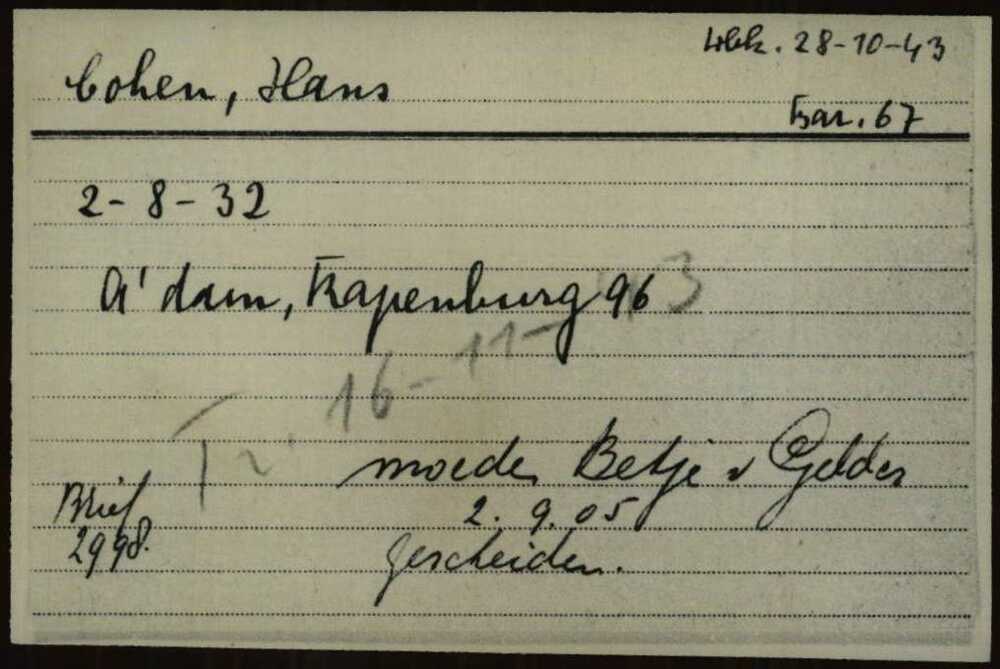 Wbk. 28-10-43
Cohen, Hans
Bar. 67
2-8-32
A'dam, Rapenburg 96
Tr. 16-11-43
moeder Betje v Gelder
2.9.05
Brief
2998.
gescheiden.